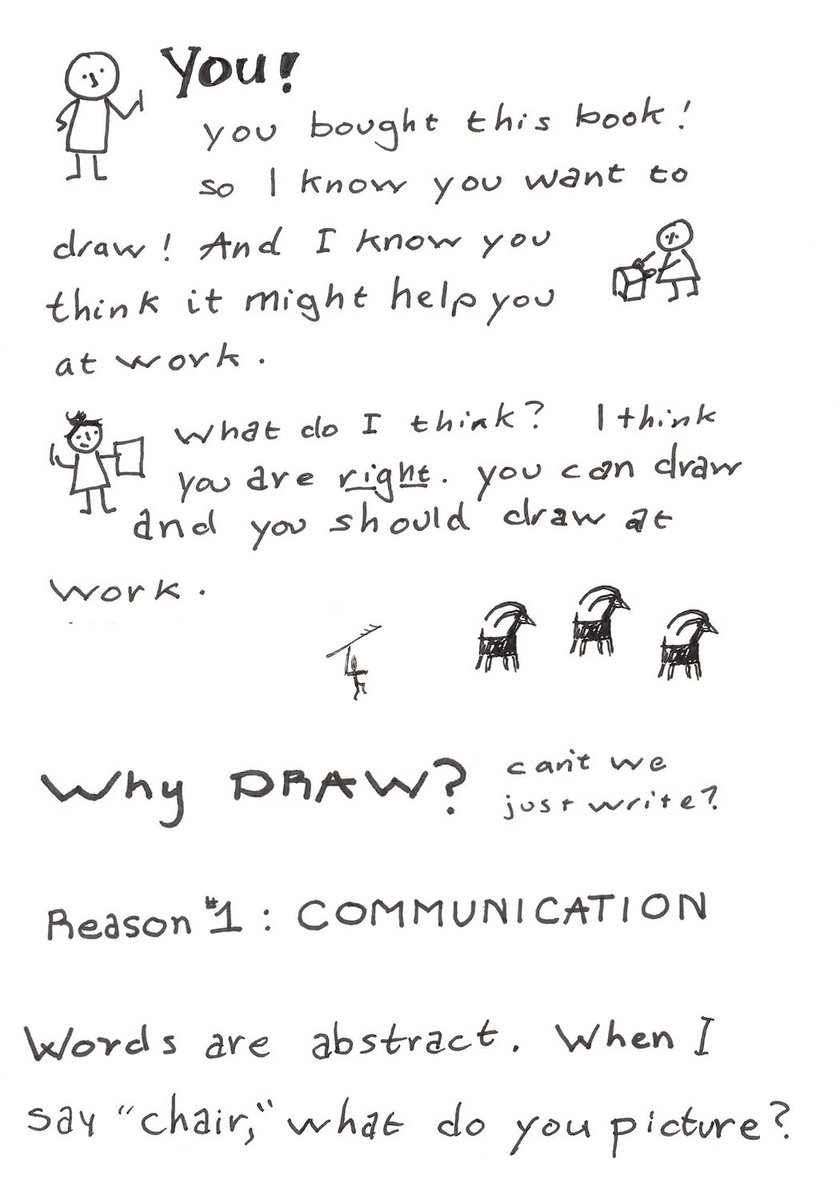 You!
you bought this book!
so I know you want to
draw! And I know you
think it might help you
at work.
What do I think? I think
you are right. you can draw
and you should draw at
work.
Why DRAW? can't we
just write?
Reason #1: COMMUNICATION
Words are abstract. When I
say "chair," what do you picture?